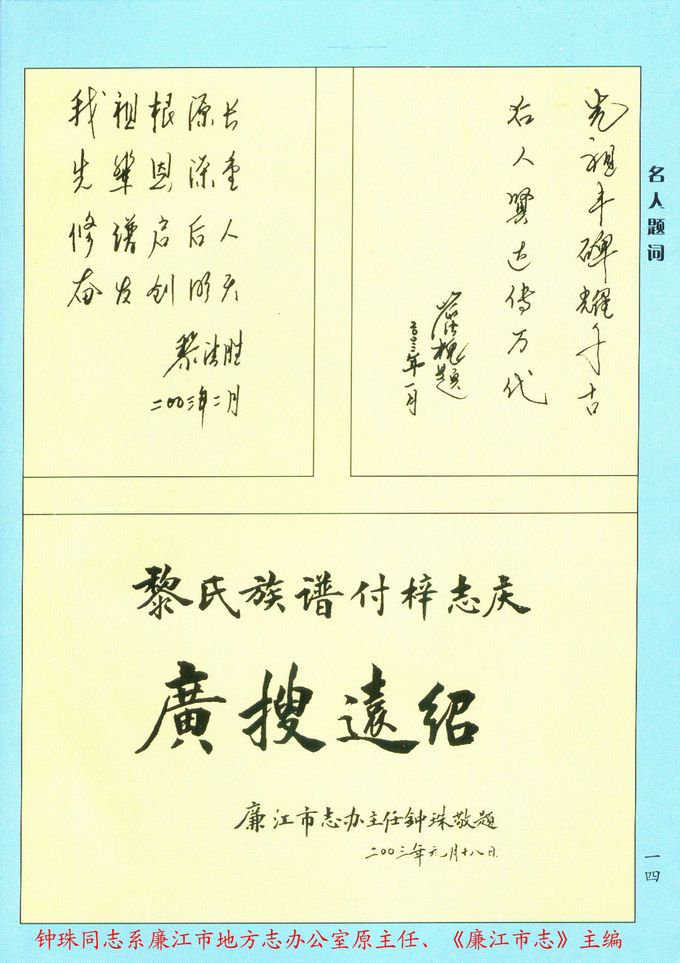 名人题词
先祖丰碑耀千古
后人贤达传万代
二〇〇三年一月
我祖根源长
先辈恩深重
修谱启后人
奋发创明天
二〇〇三年二月
黎氏族谱付梓志庆
廣搜遠绍
廉江市志办主任钟珠敬题
二〇〇三年元月十八日
一四
钟珠同志系廉江市地方志办公室原主任、《廉江市志》主编